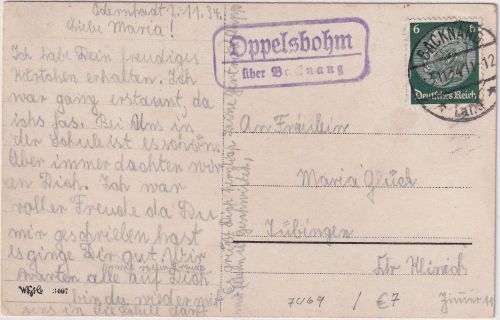 1.11.34.
Liebe Maria!
Ich habe Dein freudiges
Kärtchen erhalten. Ich
war ganz erstaunt, da
ichs las. Bei Uns in
der Schule ist es schön.
Aber immer dachten wir
an Dich. Ich war
voller Freude da Du
mir geschrieben hast
es ginge Dir gut. Wir
warten alle auf Dich
voller Freude
bis Du wieder mit
uns in die Schule darf
W.St.G. 3407
Oppelsbohm
über Backnang
BACKNANG
1.11.34
12
Land
6
6
Deutsches Reich
An Fräulein
Maria Glück
Tübingen
Str Klinick
Es grüßt Dich herzlich Deine
7469 / €7
Zimmer